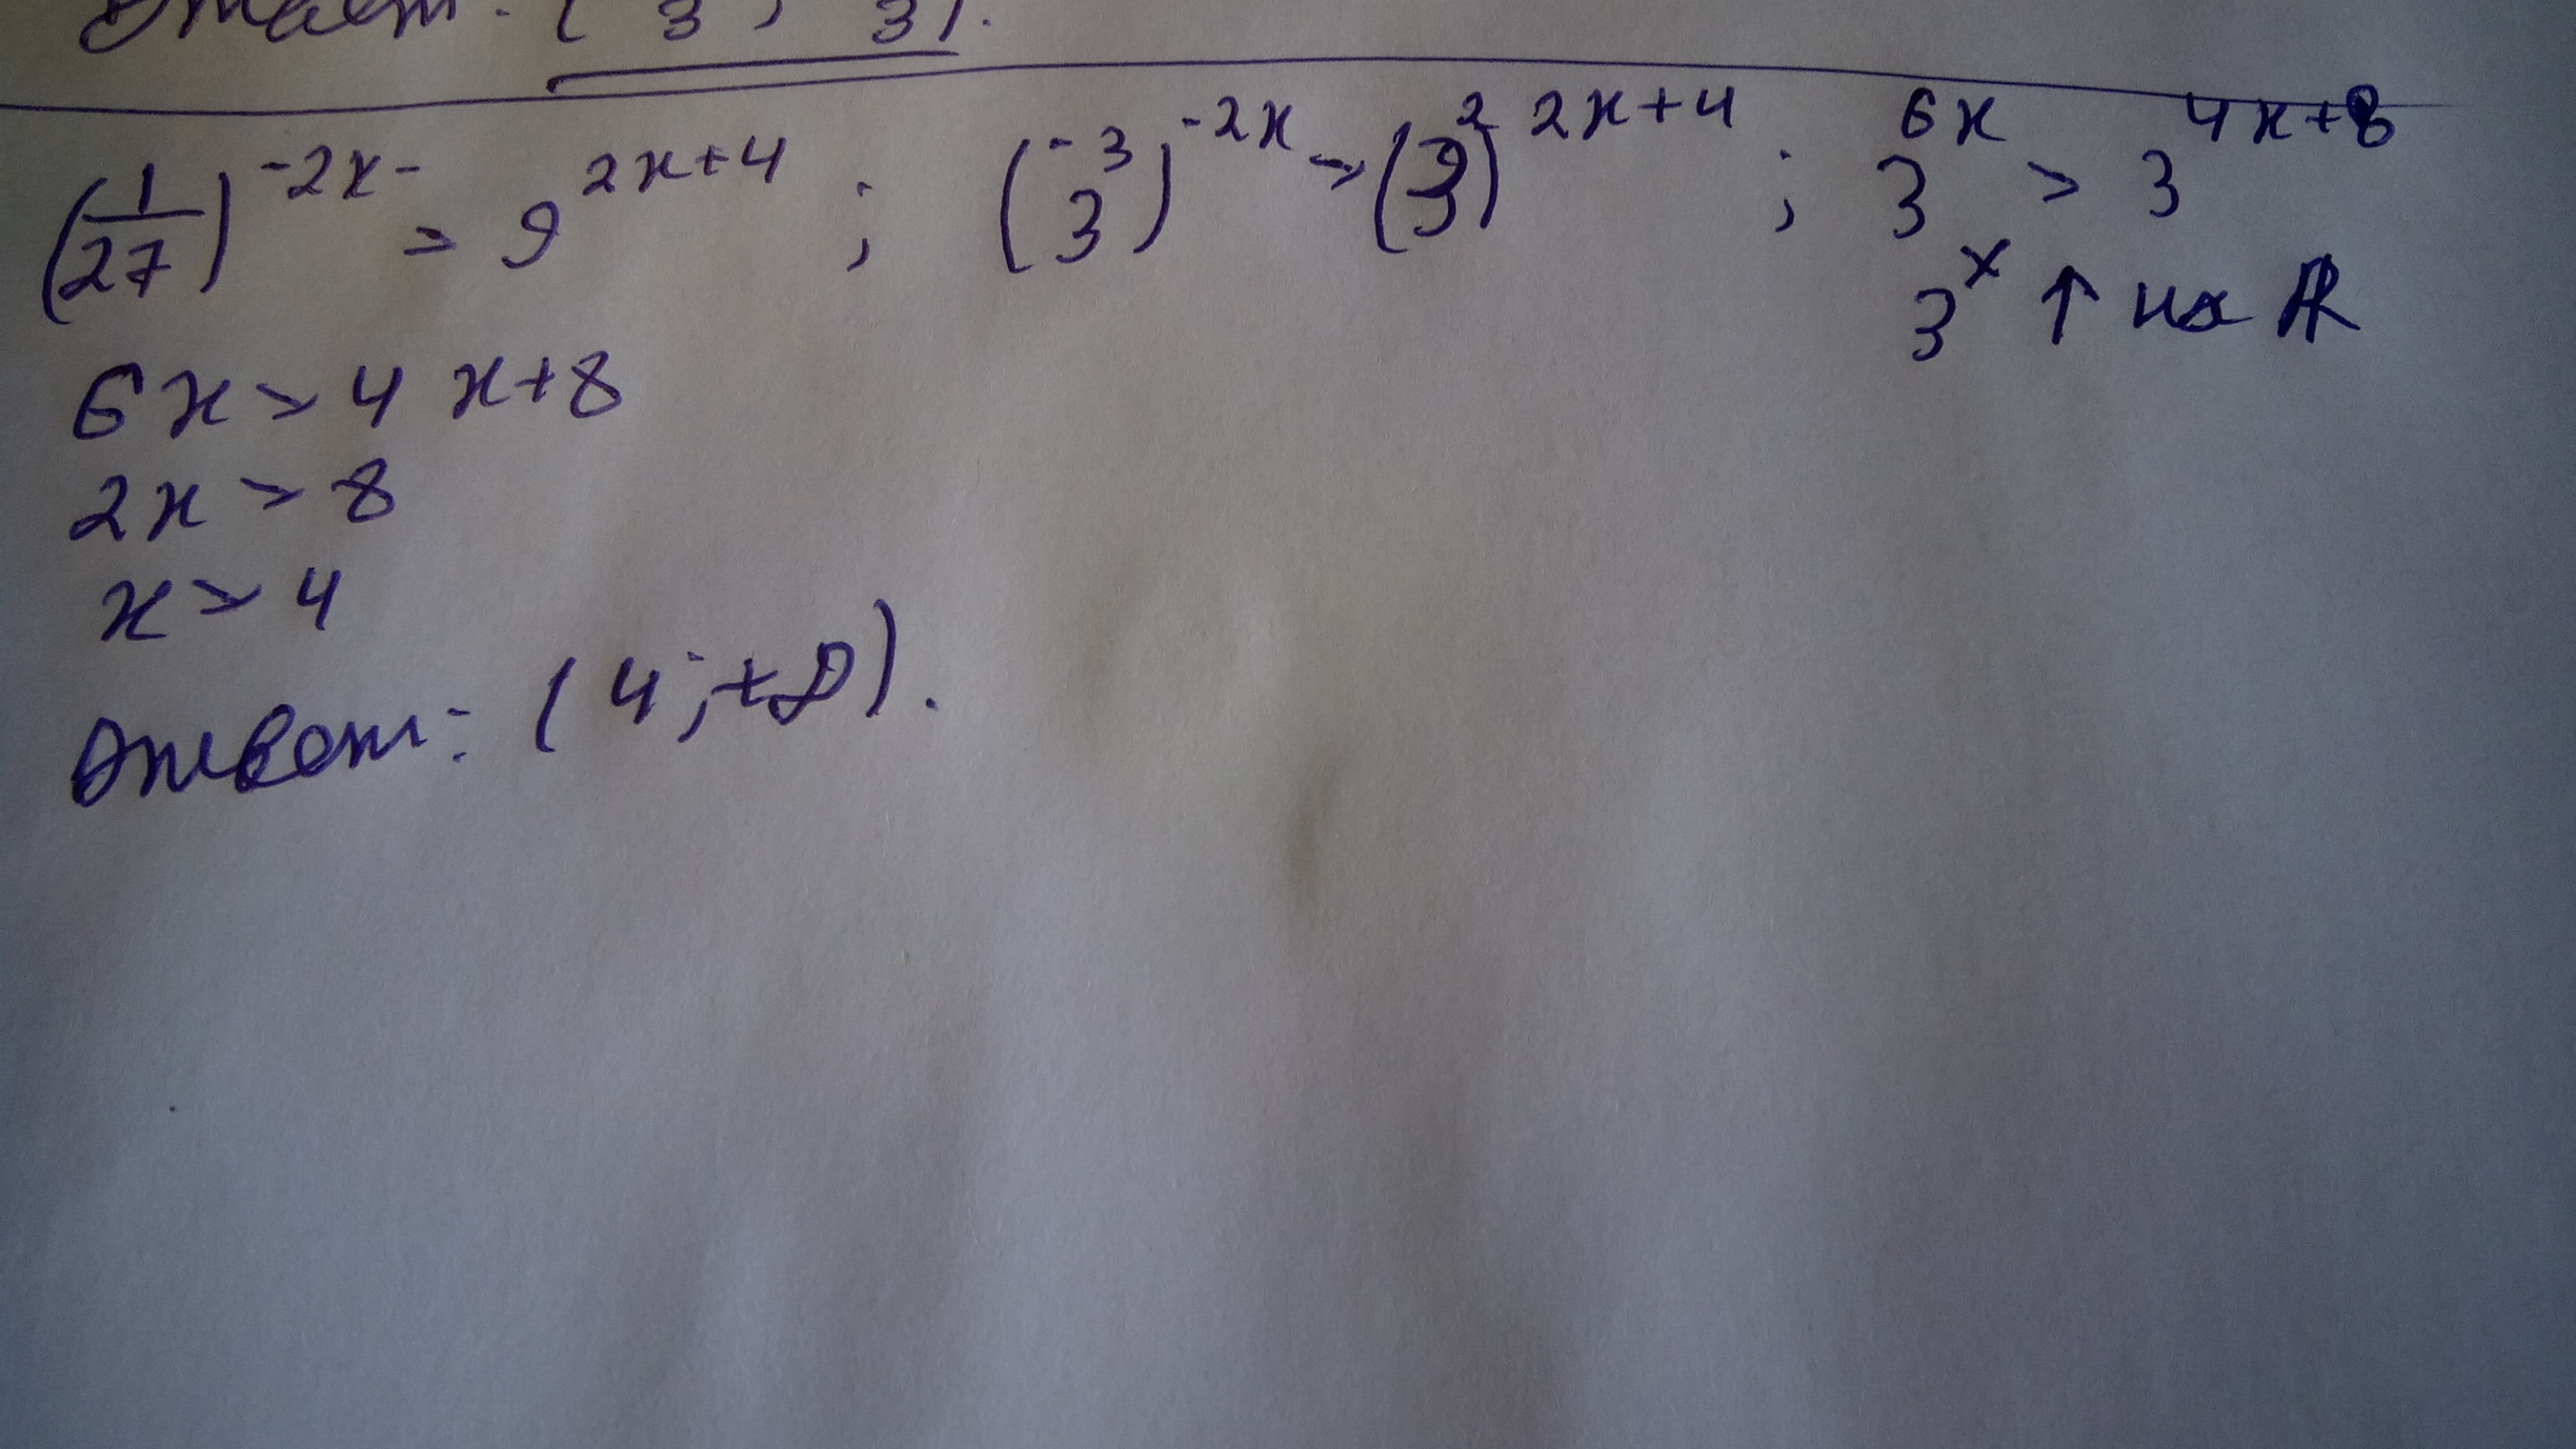 Ответ: ( 3 ; 3 ).
(1/27)^(-2x-) > 9^(2x+4) ; (3^(-3))^(-2x) > (3^2)^(2x+4) ; 3^(6x) > 3^(4x+8)
3^x ↑ на R
6x > 4x+8
2x > 8
x > 4
Ответ: (4;+∞).